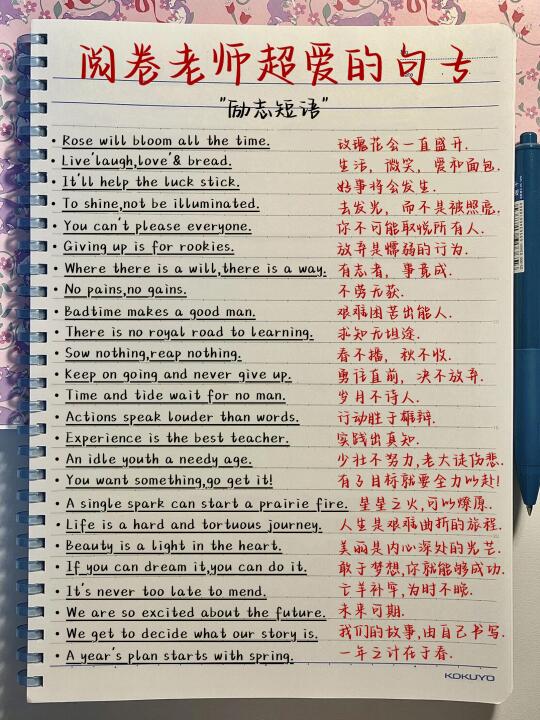 阅卷老师超爱的句子
"励志短语"
• Rose will bloom all the time. 玫瑰花会一直盛开.
• Live'laugh,love'& bread. 生活，微笑，爱和面包.
• It'll help the luck stick. 好事将会发生.
• To shine,not be illuminated. 去发光，而不是被照亮.
• You can't please everyone. 你不可能取悦所有人.
• Giving up is for rookies. 放弃是懦弱的行为.
• Where there is a will,there is a way. 有志者，事竟成.
• No pains,no gains. 不劳无获.
• Badtime makes a good man. 艰难困苦出能人.
• There is no royal road to learning. 求知无坦途.
• Sow nothing,reap nothing. 春不播，秋不收.
• Keep on going and never give up. 勇往直前，决不放弃.
• Time and tide wait for no man. 岁月不待人.
• Actions speak louder than words. 行动胜于雄辩.
• Experience is the best teacher. 实践出真知.
• An idle youth a needy age. 少壮不努力,老大徒伤悲.
• You want something,go get it! 有了目标就要全力以赴!
• A single spark can start a prairie fire. 星星之火,可以燎原.
• Life is a hard and tortuous journey. 人生是艰难曲折的旅程.
• Beauty is a light in the heart. 美丽是内心深处的光芒.
• If you can dream it,you can do it. 敢于梦想,你就能够成功.
• It's never too late to mend. 亡羊补牢,为时不晚.
• We are so excited about the future. 未来可期.
• We get to decide what our story is. 我们的故事,由自己书写.
• A year's plan starts with spring. 一年之计在于春.
KOKUYO